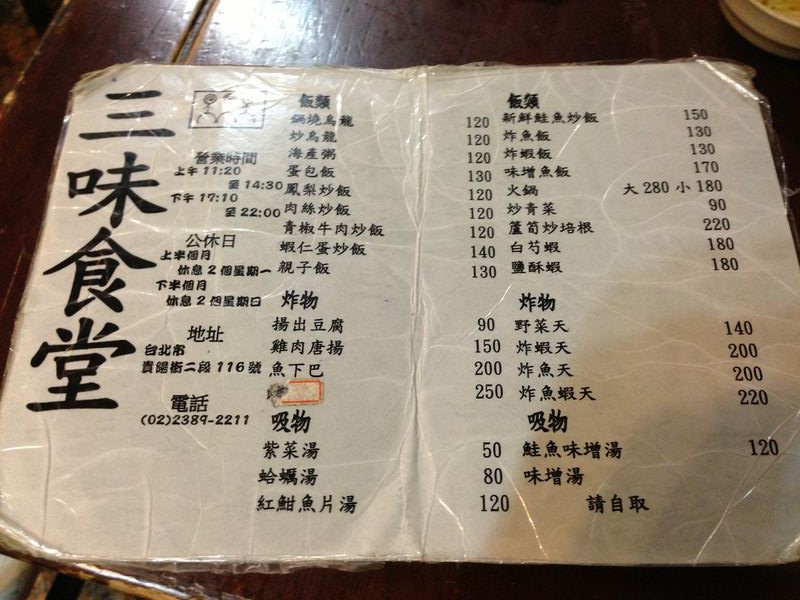 三味食堂
營業時間
上午 11:20
至 14:30
下午 17:10
至 22:00
公休日
上半個月
休息 2 個星期一
下半個月
休息 2 個星期日
地址
台北市
貴陽街二段 116 號
電話
(02)2389-2211
飯類
鍋燒烏龍 120
炒烏龍 120
海產粥 120
蛋包飯 130
鳳梨炒飯 120
肉絲炒飯 120
青椒牛肉炒飯 120
蝦仁蛋炒飯 140
親子飯 130
炸物
揚出豆腐 90
雞肉唐揚 150
魚下巴 200
250
吸物
紫菜湯 50
蛤蠣湯 80
紅魽魚片湯 120
飯類
新鮮鮭魚炒飯 150
炸魚飯 130
炸蝦飯 130
味增魚飯 170
火鍋 大 280 小 180
炒青菜 90
蘆筍炒培根 220
白芍蝦 180
鹽酥蝦 180
炸物
野菜天 140
炸蝦天 200
炸魚天 200
炸魚蝦天 220
吸物
鮭魚味增湯 120
味增湯 請自取